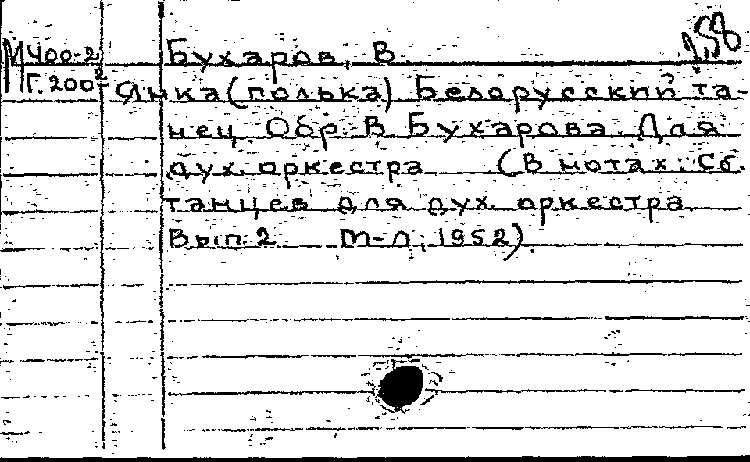 М400-2 Бухаров, В. 1,58
Г.200² Янка (полька) Белорусский та-
нец. Обр. В. Бухарова. Для
дух. оркестра (В нотах: Сб.
танцев для дух. оркестра.
Вып. 2. М-Л, 1952).